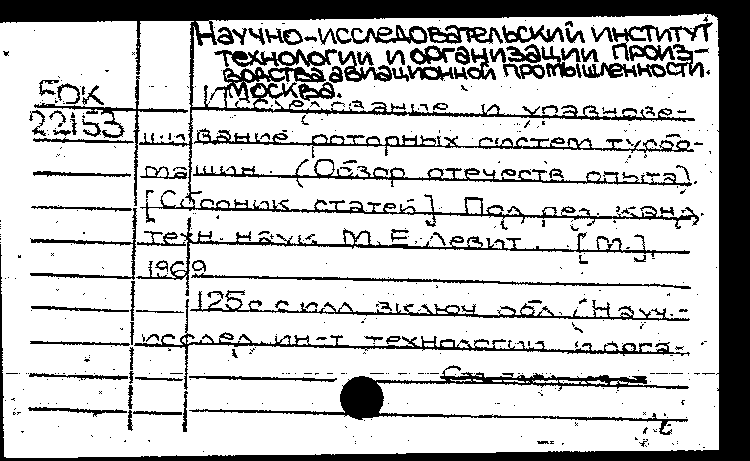 Научно-исследовательский институт
технологии и организации произ-
водства авиационной промышленности.
Москва.
ЕОК
22153
Исследование и уравнове-
шивание роторных систем турбо-
машин. (Обзор отечеств опыта).
[Сборник статей]. Под ред. канд.
техн. наук М.Е.Левит. [М.],
1969
125с с илл. включ обл. (Науч.-
исслед. ин-т технологии и орга-